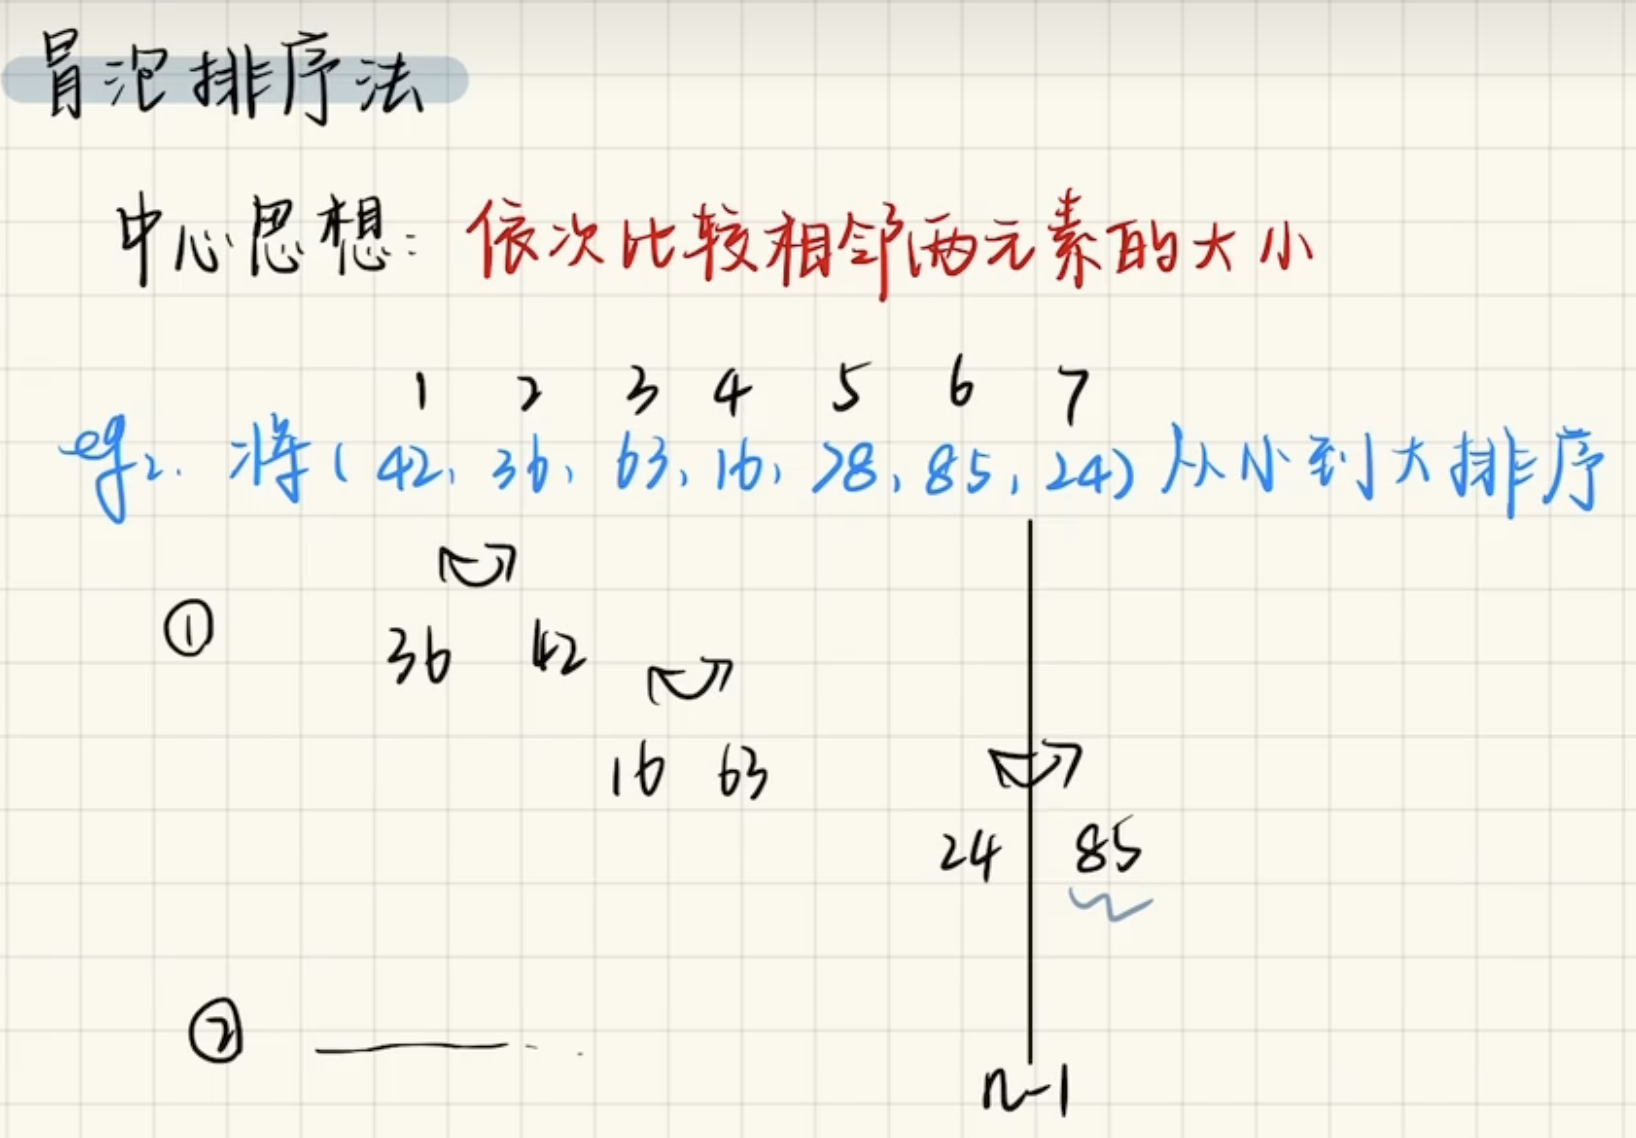 冒泡排序法
中心思想: 依次比较相邻两元素的大小
1 2 3 4 5 6 7
eg2. 将(42, 36, 63, 16, 78, 85, 24) 从小到大排序
①
36 42
16 63
24 85
②
n-1